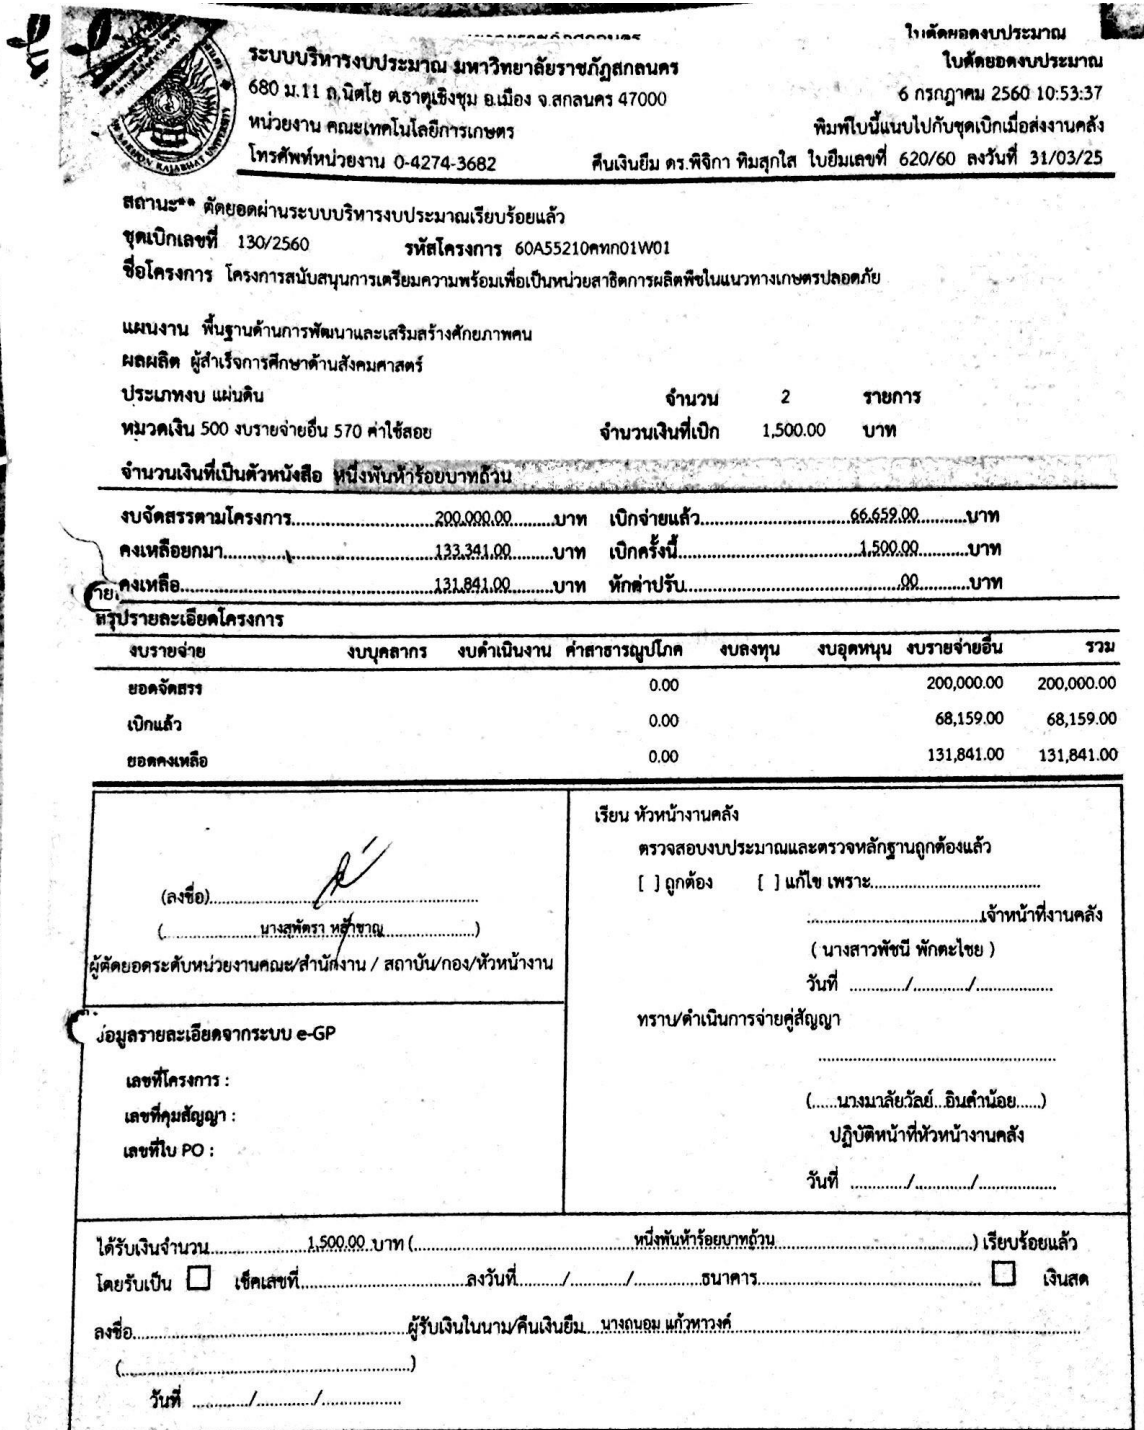 ใบตัดยอดงบประมาณ
ระบบบริหารงบประมาณ มหาวิทยาลัยราชภัฏสกลนคร
ใบตัดยอดงบประมาณ
680 ม.11 ถ.นิตโย ต.ธาตุเชิงชุม อ.เมือง จ.สกลนคร 47000
6 กรกฎาคม 2560 10:53:37
หน่วยงาน คณะเทคโนโลยีการเกษตร
พิมพ์ใบนี้แนบไปกับชุดเบิกเมื่อส่งงานคลัง
โทรศัพท์หน่วยงาน 0-4274-3682 คืนเงินยืม ดร.พิจิกา ทิมสุกใส ใบยืมเลขที่ 620/60 ลงวันที่ 31/03/25
สถานะ** ตัดยอดผ่านระบบบริหารงบประมาณเรียบร้อยแล้ว
ชุดเบิกเลขที่ 130/2560 รหัสโครงการ 60A55210คทก01W01
ชื่อโครงการ โครงการสนับสนุนการเตรียมความพร้อมเพื่อเป็นหน่วยสาธิตการผลิตพืชในแนวทางเกษตรปลอดภัย
แผนงาน พื้นฐานด้านการพัฒนาและเสริมสร้างศักยภาพคน
ผลผลิต ผู้สำเร็จการศึกษาด้านสังคมศาสตร์
ประเภทงบ แผ่นดิน จำนวน 2 รายการ
หมวดเงิน 500 งบรายจ่ายอื่น 570 ค่าใช้สอย จำนวนเงินที่เบิก 1,500.00 บาท
จำนวนเงินที่เป็นตัวหนังสือ หนึ่งพันห้าร้อยบาทถ้วน
งบจัดสรรตามโครงการ..........200,000.00..........บาท เบิกจ่ายแล้ว..........66,659.00..........บาท
คงเหลือยกมา..........133,341.00..........บาท เบิกครั้งนี้..........1,500.00..........บาท
คงเหลือ..........131,841.00..........บาท หักค่าปรับ...........00..........บาท
สรุปรายละเอียดโครงการ
งบรายจ่าย งบบุคลากร งบดำเนินงาน ค่าสาธารณูปโภค งบลงทุน งบอุดหนุน งบรายจ่ายอื่น รวม
ยอดจัดสรร 0.00 200,000.00 200,000.00
เบิกแล้ว 0.00 68,159.00 68,159.00
ยอดคงเหลือ 0.00 131,841.00 131,841.00
(ลงชื่อ)..............................
(..........นางสุพัตรา หล้าชาญ..........)
ผู้ตัดยอดระดับหน่วยงานคณะ/สำนักงาน / สถาบัน/กอง/หัวหน้างาน
เรียน หัวหน้างานคลัง
ตรวจสอบงบประมาณและตรวจหลักฐานถูกต้องแล้ว
[ ] ถูกต้อง [ ] แก้ไข เพราะ..............................
..............................เจ้าหน้าที่งานคลัง
( นางสาวพัชนี พักตะไชย )
วันที่ ............/............/................
ข้อมูลรายละเอียดจากระบบ e-GP
เลขที่โครงการ :
เลขที่คุมสัญญา :
เลขที่ใบ PO :
ทราบ/ดำเนินการจ่ายคู่สัญญา
..............................
(......นางมาลัยวัลย์...อินคำน้อย......)
ปฏิบัติหน้าที่หัวหน้างานคลัง
วันที่ ............/............/................
ได้รับเงินจำนวน..........1,500.00 บาท (..........หนึ่งพันห้าร้อยบาทถ้วน..........) เรียบร้อยแล้ว
โดยรับเป็น ☐ เช็คเลขที่..............................ลงวันที่........../............/...............ธนาคาร.............................. ☐ เงินสด
ลงชื่อ..............................ผู้รับเงินในนาม/คืนเงินยืม....นางถนอม แก้วหาวงค์..............................
(..............................)
วันที่ ............/............/................